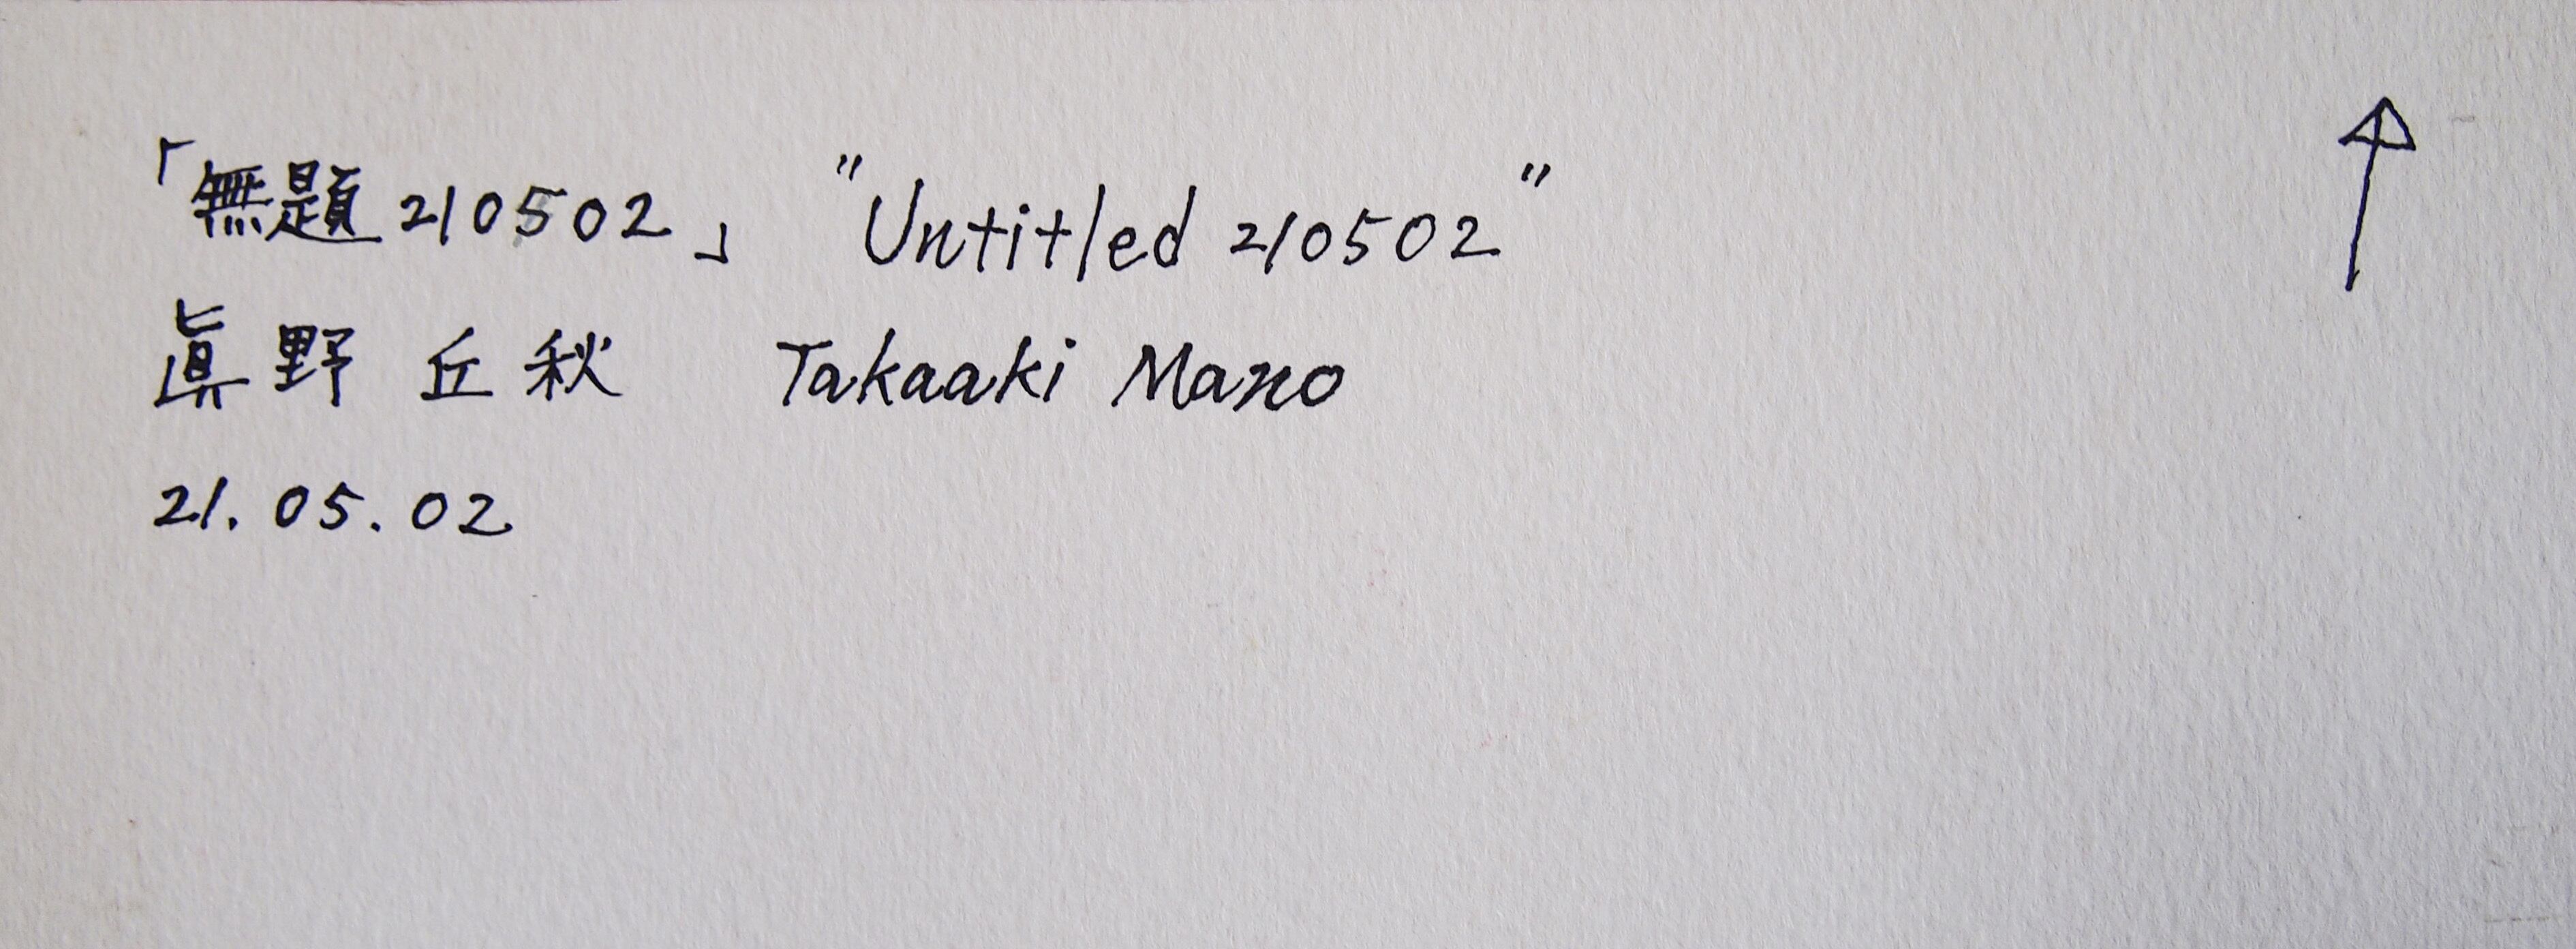 「無題210502」 "Untitled 210502"
眞野 丘秋 Takaaki Mano
21.05.02